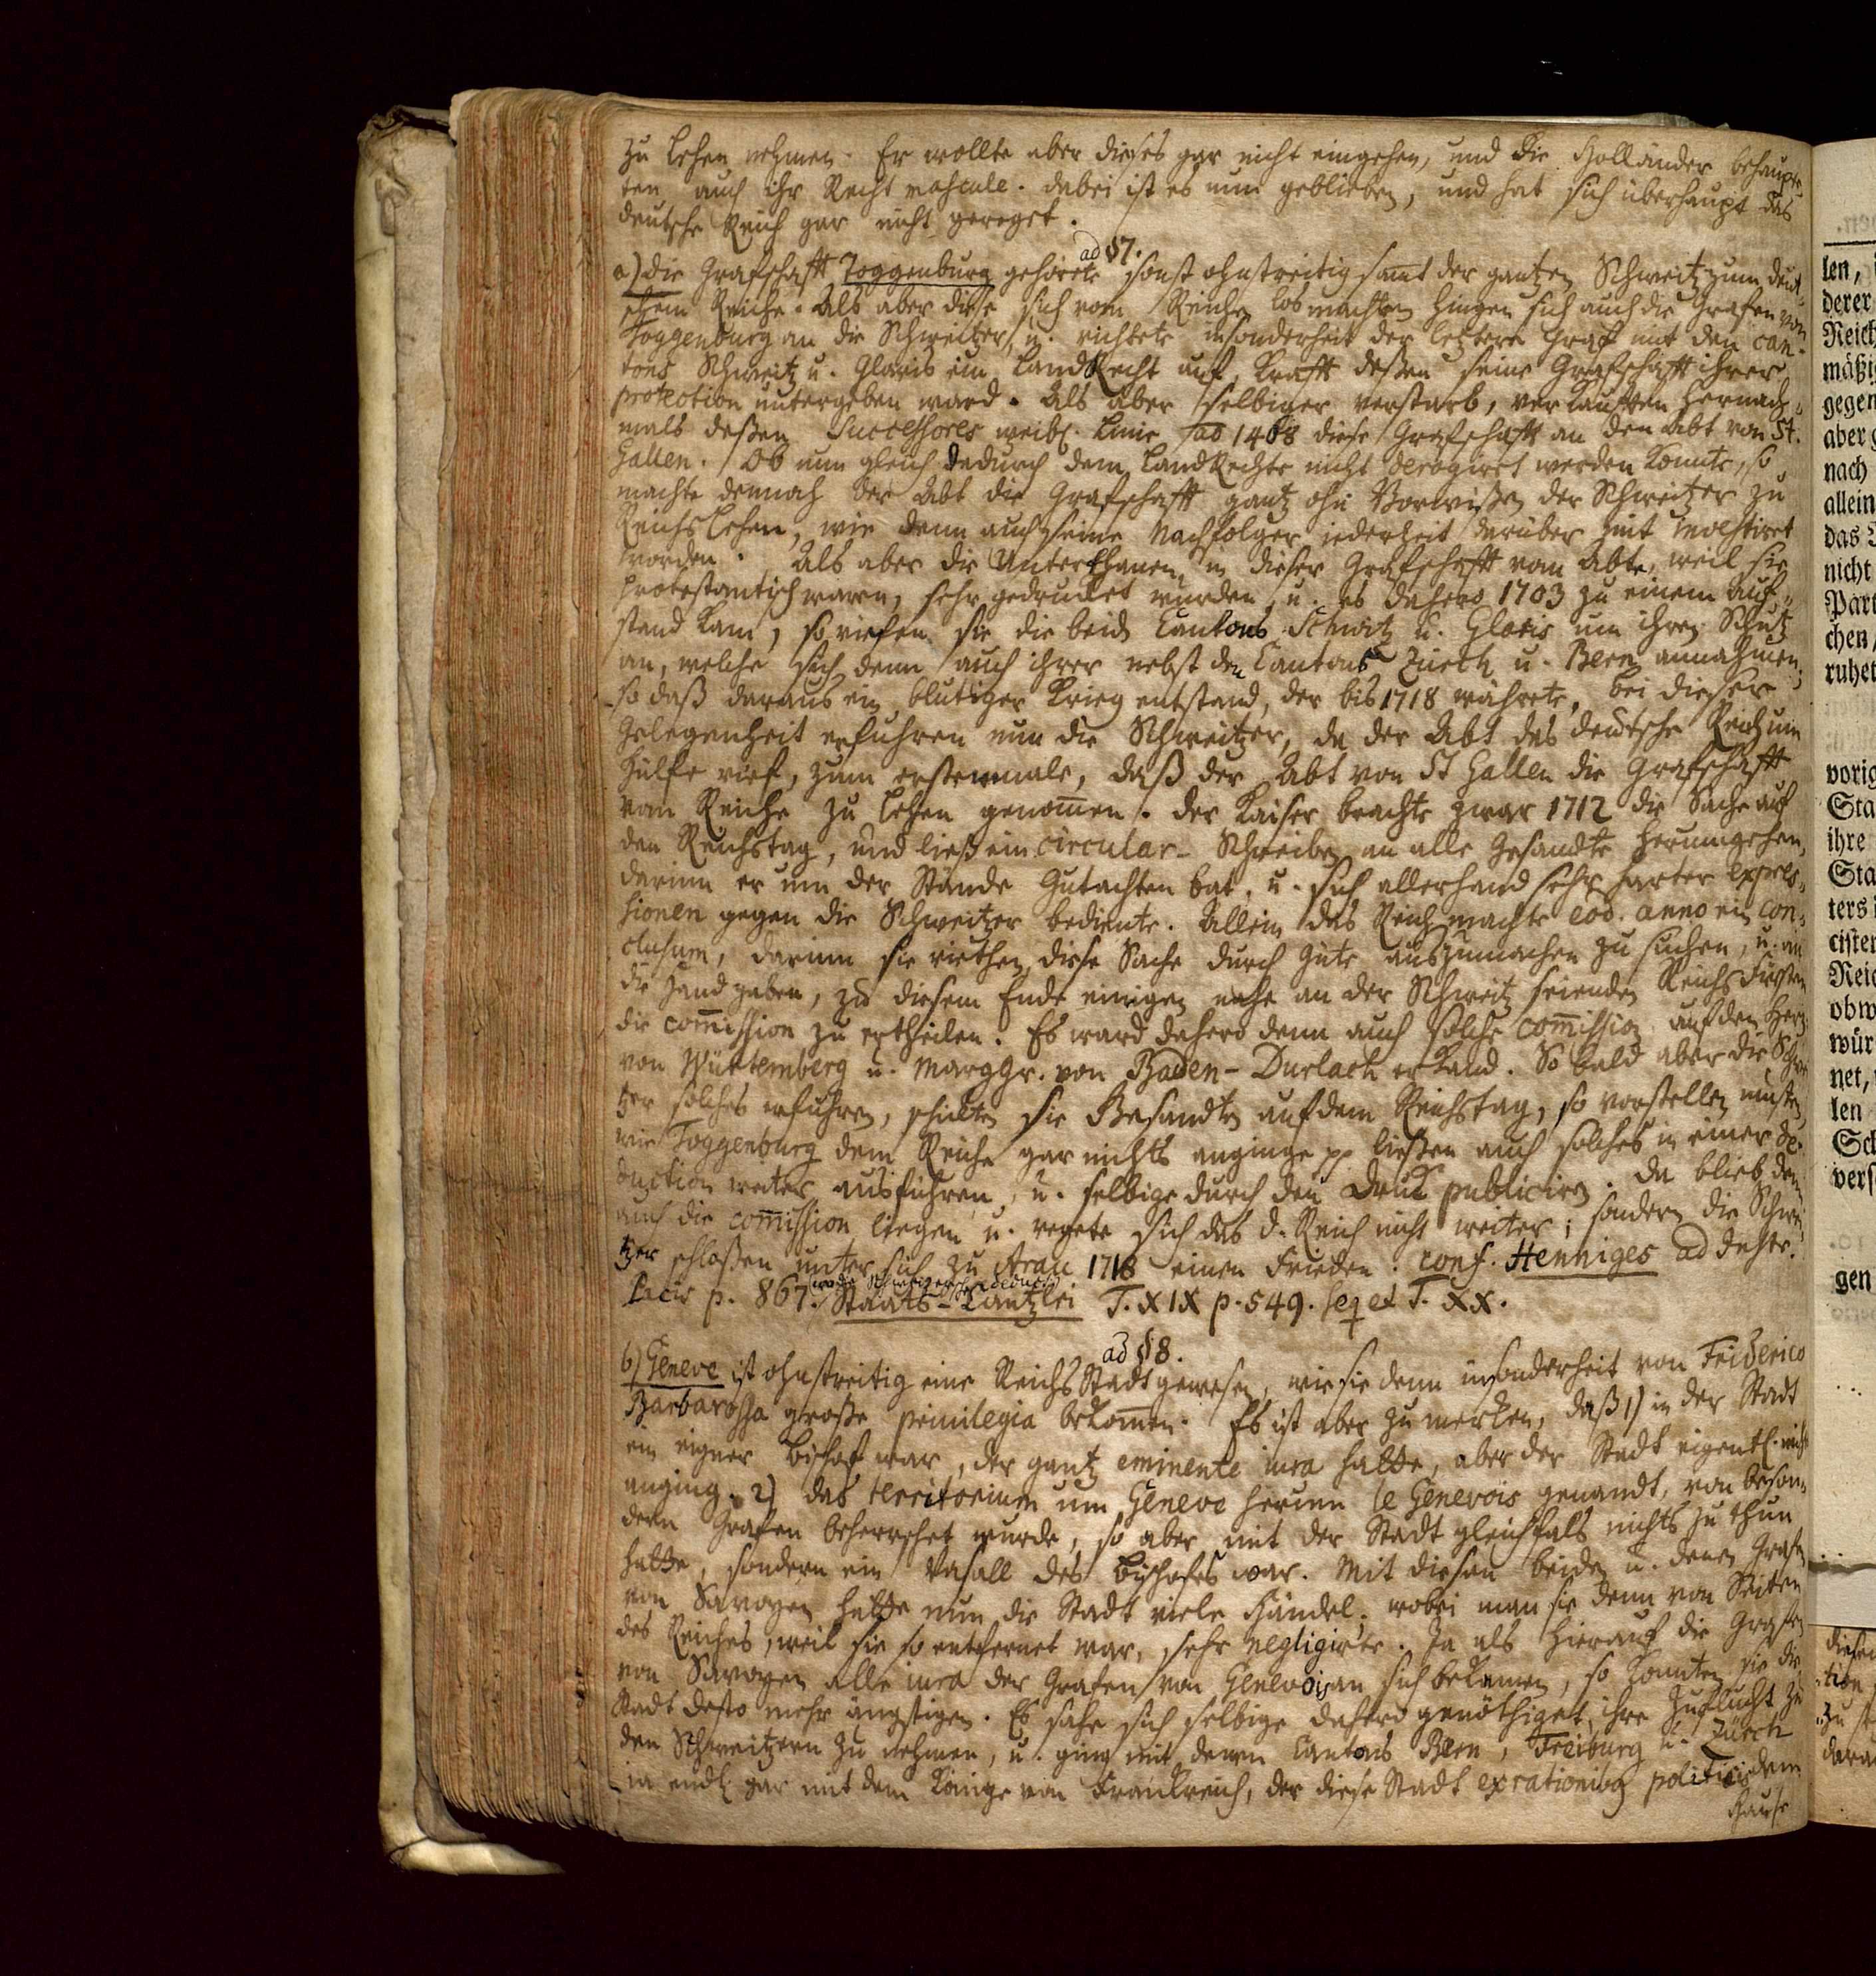 zu Lehen nehmen. Er wollte aber dieses gar nicht eingehen, und die Holländer behaupte
ten auch ihr Recht mascule. dabei ist es nun geblieben, und hat sich überhaupt das
deutsche Reich gar nicht gereget.
ad §7.
a) Die Grafschafft Toggenburg gehörete sonst ohnstreitig samt der gantzen Schweitz zum deut-
schen Reiche. Als aber diese sich vom Reiche los machten hingen sich auch die Grafen von
Toggenburg an die Schweitzer, u. richtete insonderheit der letztere Graf mit den can-
tons Schweitz u. Glaris ein LandRecht auf, Krafft deßen seine Grafschafft ihrer
protection untergeben ward. Als aber selbiger verstarb, verkaufften hernach-
mals deßen Successores weibl. Linie ao 1468 diese Grafschafft an den Abt von St.
Gallen. Ob nun gleich dadurch dem LandRechte nicht derogiret werden konnte, so
machte dennoch der Abt die Grafschafft gantz ohn Vorwißen der Schweitzer zu
ReichsLehen, wie denn auch seine Nachfolger iederzeit darüber mit investiret
worden. Als aber die Unterthanen in dieser Grafschafft vom Abte, weil sie
Protestantisch waren, sehr gedrucket wurden, u. es dahero 1703 zu einem Auf-
stand kam, so riefen sie die beide Cantons Schwitz u. Glaris um ihren Schutz
an, welche sich denn auch ihrer nebst den Cantons Zürch u. Bern annahmen;
so daß daraus ein blutiger Krieg entstand, der bis 1718 währete, bei dieser
Gelegenheit erfuhren nun die Schweitzer, da der Abt das deutsche Reich um
Hülfe rief, zum erstenmale, daß der Abt von St Gallen die Grafschafft
vom Reiche zu Lehen genommen. der Kaiser brachte zwar 1712 die Sache auf
den Reichstag, und ließ ein circular-Schreiben an alle Gesandte herumgehen,
darinn er um der Stände Gutachten bat, u. sich allerhand sehr harter expres-
sionen gegen die Schweitzer bediente. Allein das Reich machte eod. anno ein con-
clusum, darinn sie riethen, diese Sache durch Güte auszumachen zu suchen, u. an
die Hand gaben, zu diesem Ende einigen nahe an der Schweitz seienden ReichsFürsten
die commission zu ertheilen. Es ward dahero denn auch solche commission auf den Herz.
von Würtemberg u. Marggr. von Baden-Durlach erkand. So bald aber die Schwei
tzer solches erfuhren, schickten sie Gesandten auf dem Reichstag, so vorstellen musten,
wie Toggenburg dem Reiche gar nichts anginge pp ließen auch solches in einer de-
duction weiter ausführen, u. selbige durch den Druk publiciren. Da blieb denn
auch die commission liegen u. regete sich das d. Reich nicht weiter; sondern die Schwei
tzer schloßen unter sich zu Arau 1718 einen Frieden. conf. Henniges ad Instr.
Pacis p. 867. (wo die Schweizerische deduction) Staats-Cantzlei T. XIX p. 549. seq et T. XX.
ad §8.
b) Geneve ist ohnstreitig eine ReichsStadt gewesen, wie sie denn insonderheit von Friderico
Barbarossa große privilegia bekommen. Es ist aber zu merken, daß 1) in der Stadt
ein eigner Bischof war, der gantz eminente iura hatte, aber der Stadt eigentl. nicht
anging. 2) das territorium um Geneve herum le Genevois genandt, von beson-
dern Grafen beherrschet wurde, so aber mit der Stadt gleichfals nichts zu thun
hatte, sondern ein Vasall des Bischofes war. Mit diesen beiden u. denen Grafen
von Savoyen hatte nun die Stadt viele Händel. wobei man sie denn von Seiten
des Reiches, weil sie so entfernet war, sehr negligirte. Ja als hierauf die Grafen
von Savoyen alle iura der Grafen von Genevois an sich bekamen, so konnten sie die
Stadt desto mehr ängstigen. Es sahe sich selbige dahero genöthiget, ihre Zuflucht zu
den Schweitzern zu nehmen, u. ging mit denen Cantons Bern, Freiburg u. Zürch
ia endl. gar mit dem Könige von Frankreich, der diese Stadt ex rationibus politicis dem
Hause
len,
derer
Reich
mäßi
gegen
aber
nach
allein
das
nicht
Part
chen,
ruhet
vorig
Sta
ihre
Sta
ters
cister
Reic
obw
wür
net,
len
Sch
vers
gen
diesen
tion
zu
dara